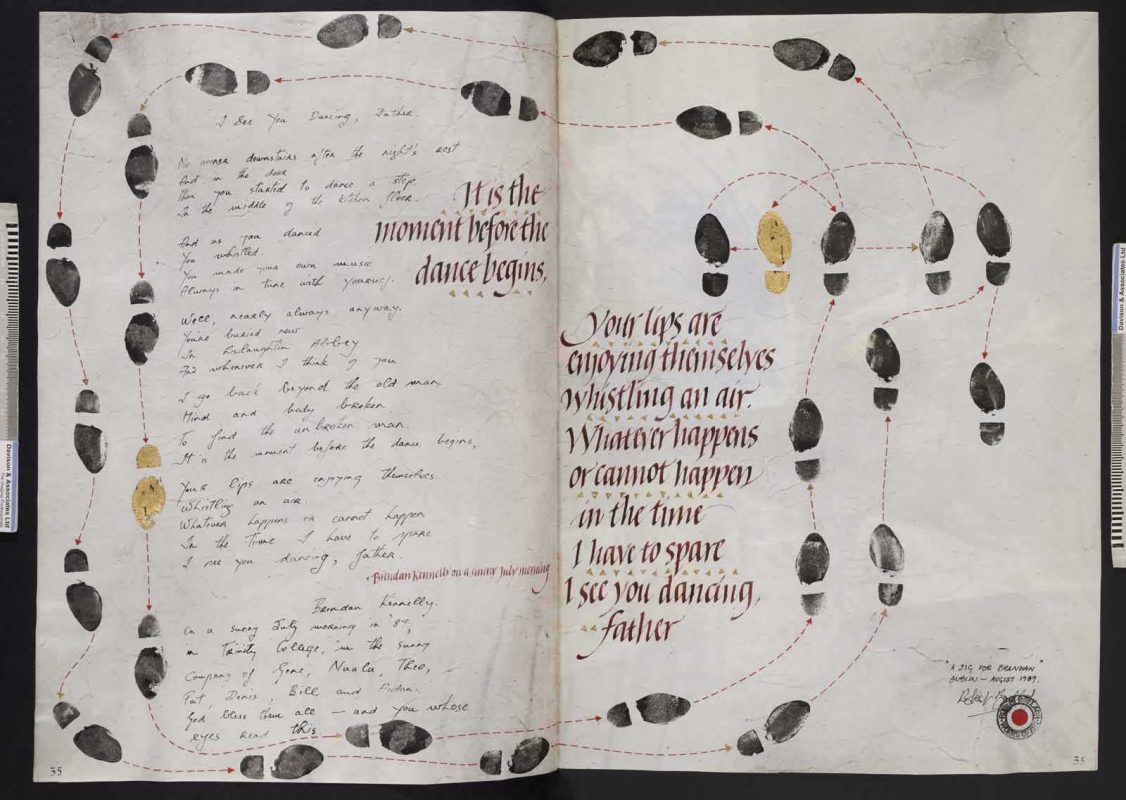 I See You Dancing, Father.
No sooner downstairs after the night's rest
And in the door
Than you started to dance a step
In the middle of the kitchen floor.
And as you danced
You whistled.
You made your own music
Always in tune with yourself.
Well, nearly always, anyway.
You're buried now
In Lislaughtin Abbey
And whenever I think of you
I go back beyond the old man
Mind and body broken
To find the unbroken man.
It is the moment before the dance begins,
Your lips are enjoying themselves
Whistling an air.
Whatever happens or cannot happen
In the time I have to spare
I see you dancing, father.
Brendan Kennelly on a sunny July morning
Brendan Kennelly.
On a sunny July morning in '89,
in Trinity College, in the sunny
Company of Gene, Nuala, Theo,
Pat, Denis Bill and
God bless them all – and you whose
eyes read this
35
It is the
moment before the
dance begins,
Your lips are
enjoying themselves
whistling an air.
Whatever happens
or cannot happen
in the time
I have to spare
I see you dancing,
father
"A JIG FOR BRENDAN"
DUBLIN – AUGUST 1989.
35
Davison & Associates Ltd
Davison & Associates Ltd